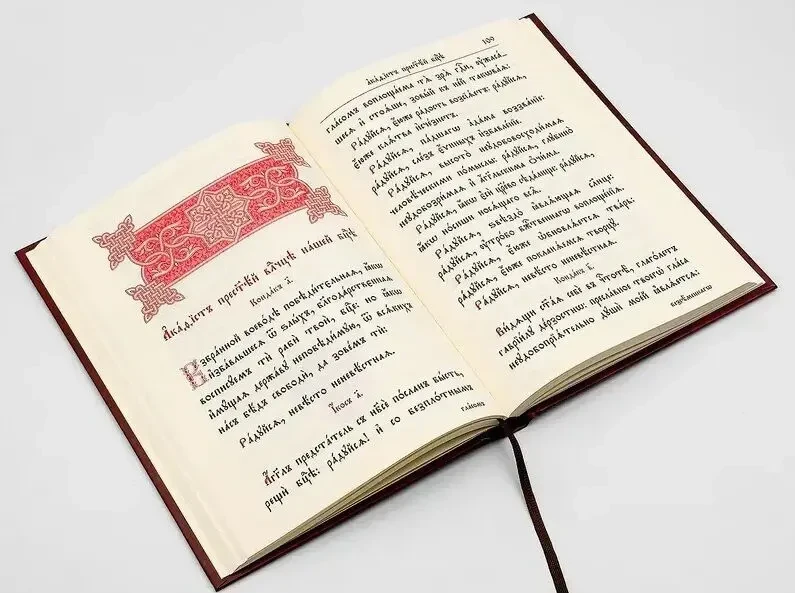 А҆ка́ѳїстъ прест҃ѣ́й влⷣчцѣ на́шей бцⷣѣ
Конда́къ а҃.
Взбра́нной воево́дѣ побѣди́тельнаѧ, ꙗ҆́кѡ
и҆зба́вльшесѧ ѿ ѕлы́хъ, бл҃года́рственнаѧ
воспису́емъ тѝ рабѝ твоѝ, бцⷣе: но ꙗ҆́кѡ
и҆мꙋ́щаѧ держа́вꙋ непобѣди́мꙋю, ѿ всѧ́кихъ
на́съ бѣ́дъ свободѝ, да зове́мъ тѝ:
Ра́дꙋйсѧ, невѣ́сто неневѣ́стнаѧ.
І҆́косъ а҃.
А҆́гг҃лъ предста́тель съ нб҃сѐ по́сланъ бы́сть,
рещѝ бцⷣѣ: ра́дꙋйсѧ! и҆ со безпло́тнымъ
гла́сомъ
а҆ка́ѳїстъ прест҃ѣ́й бцⷣѣ 109
гла́сомъ воплоща́ема тѧ̀ зрѧ̀ гдⷭ҇и, ᲂу҆жаса́-
шесѧ и҆ стоѧ́ше, зовы́й къ не́й такова̑ѧ:
Ра́дꙋйсѧ, є҆́юже ра́дость возсїѧ́етъ: ра́дꙋйсѧ,
є҆́юже клѧ́тва и҆зче́знетъ.
Ра́дꙋйсѧ, па́дшагѡ а҆да́ма воззва́нїе:
ра́дꙋйсѧ, сле́зъ є҆́ѵиныхъ и҆збавле́нїе.
Ра́дꙋйсѧ, высото̀ неꙋдобовосходи́маѧ
человѣ́ческими по́мыслы: ра́дꙋйсѧ, глꙋбино̀
неꙋдобозри́маѧ и҆ а҆́гг҃льскима ѻ҆чи́ма.
Ра́дꙋйсѧ, ꙗ҆́кѡ є҆сѝ цр҃е́во сѣда́лище: ра́дꙋйсѧ,
ꙗ҆́кѡ но́сиши носѧ́щаго всѧ̑.
Ра́дꙋйсѧ, ѕвѣздо̀ ꙗ҆влѧ́ющаѧ сл҃нце:
ра́дꙋйсѧ, ᲂу҆тро́бо бж҃е́ственнагѡ воплоще́нїѧ.
Ра́дꙋйсѧ, є҆́юже ѡ҆бновлѧ́етсѧ тва́рь:
ра́дꙋйсѧ, є҆́юже покланѧ́емсѧ творцꙋ̀.
Ра́дꙋйсѧ, невѣ́сто неневѣ́стнаѧ.
Конда́къ в҃.
Ви́дѧщи ст҃а́ѧ себѐ въ чⷭ҇тотѣ̀, глаго́летъ
гаврїи́лꙋ де́рзостнѡ: пресла́вное твоегѡ̀ гла́са
неꙋдобопрїѧ́тельно дꙋшѝ мое́й ꙗ҆влѧ́етсѧ: